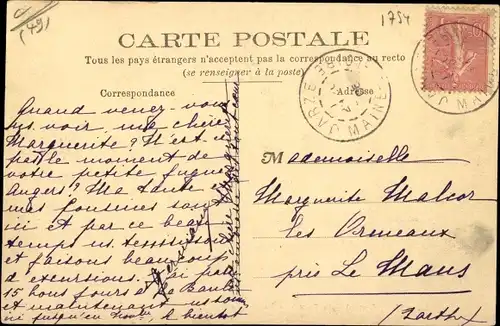 (49)
1754
CARTE POSTALE
Tous les pays étrangers n'acceptent pas la correspondance au recto
(se renseigner à la poste)
Correspondance
Adresse
JARZÉ
MAINE
Quand venez-vous
ns. voir ma chère
Marguerite? N'est-ce
pas le moment de
votre petite fugue
Angers? Ma tante
mes cousines sont
ici et par ce beau
temps ns.
et faisons beaucoup
d'excursions. J'ai passé
15 bons jours à La Baule
et maintenant
ici jusqu'en à bientôt
Mademoiselle
Marguerite Malcor
les Ormeaux
près Le Mans
(Sarthe)